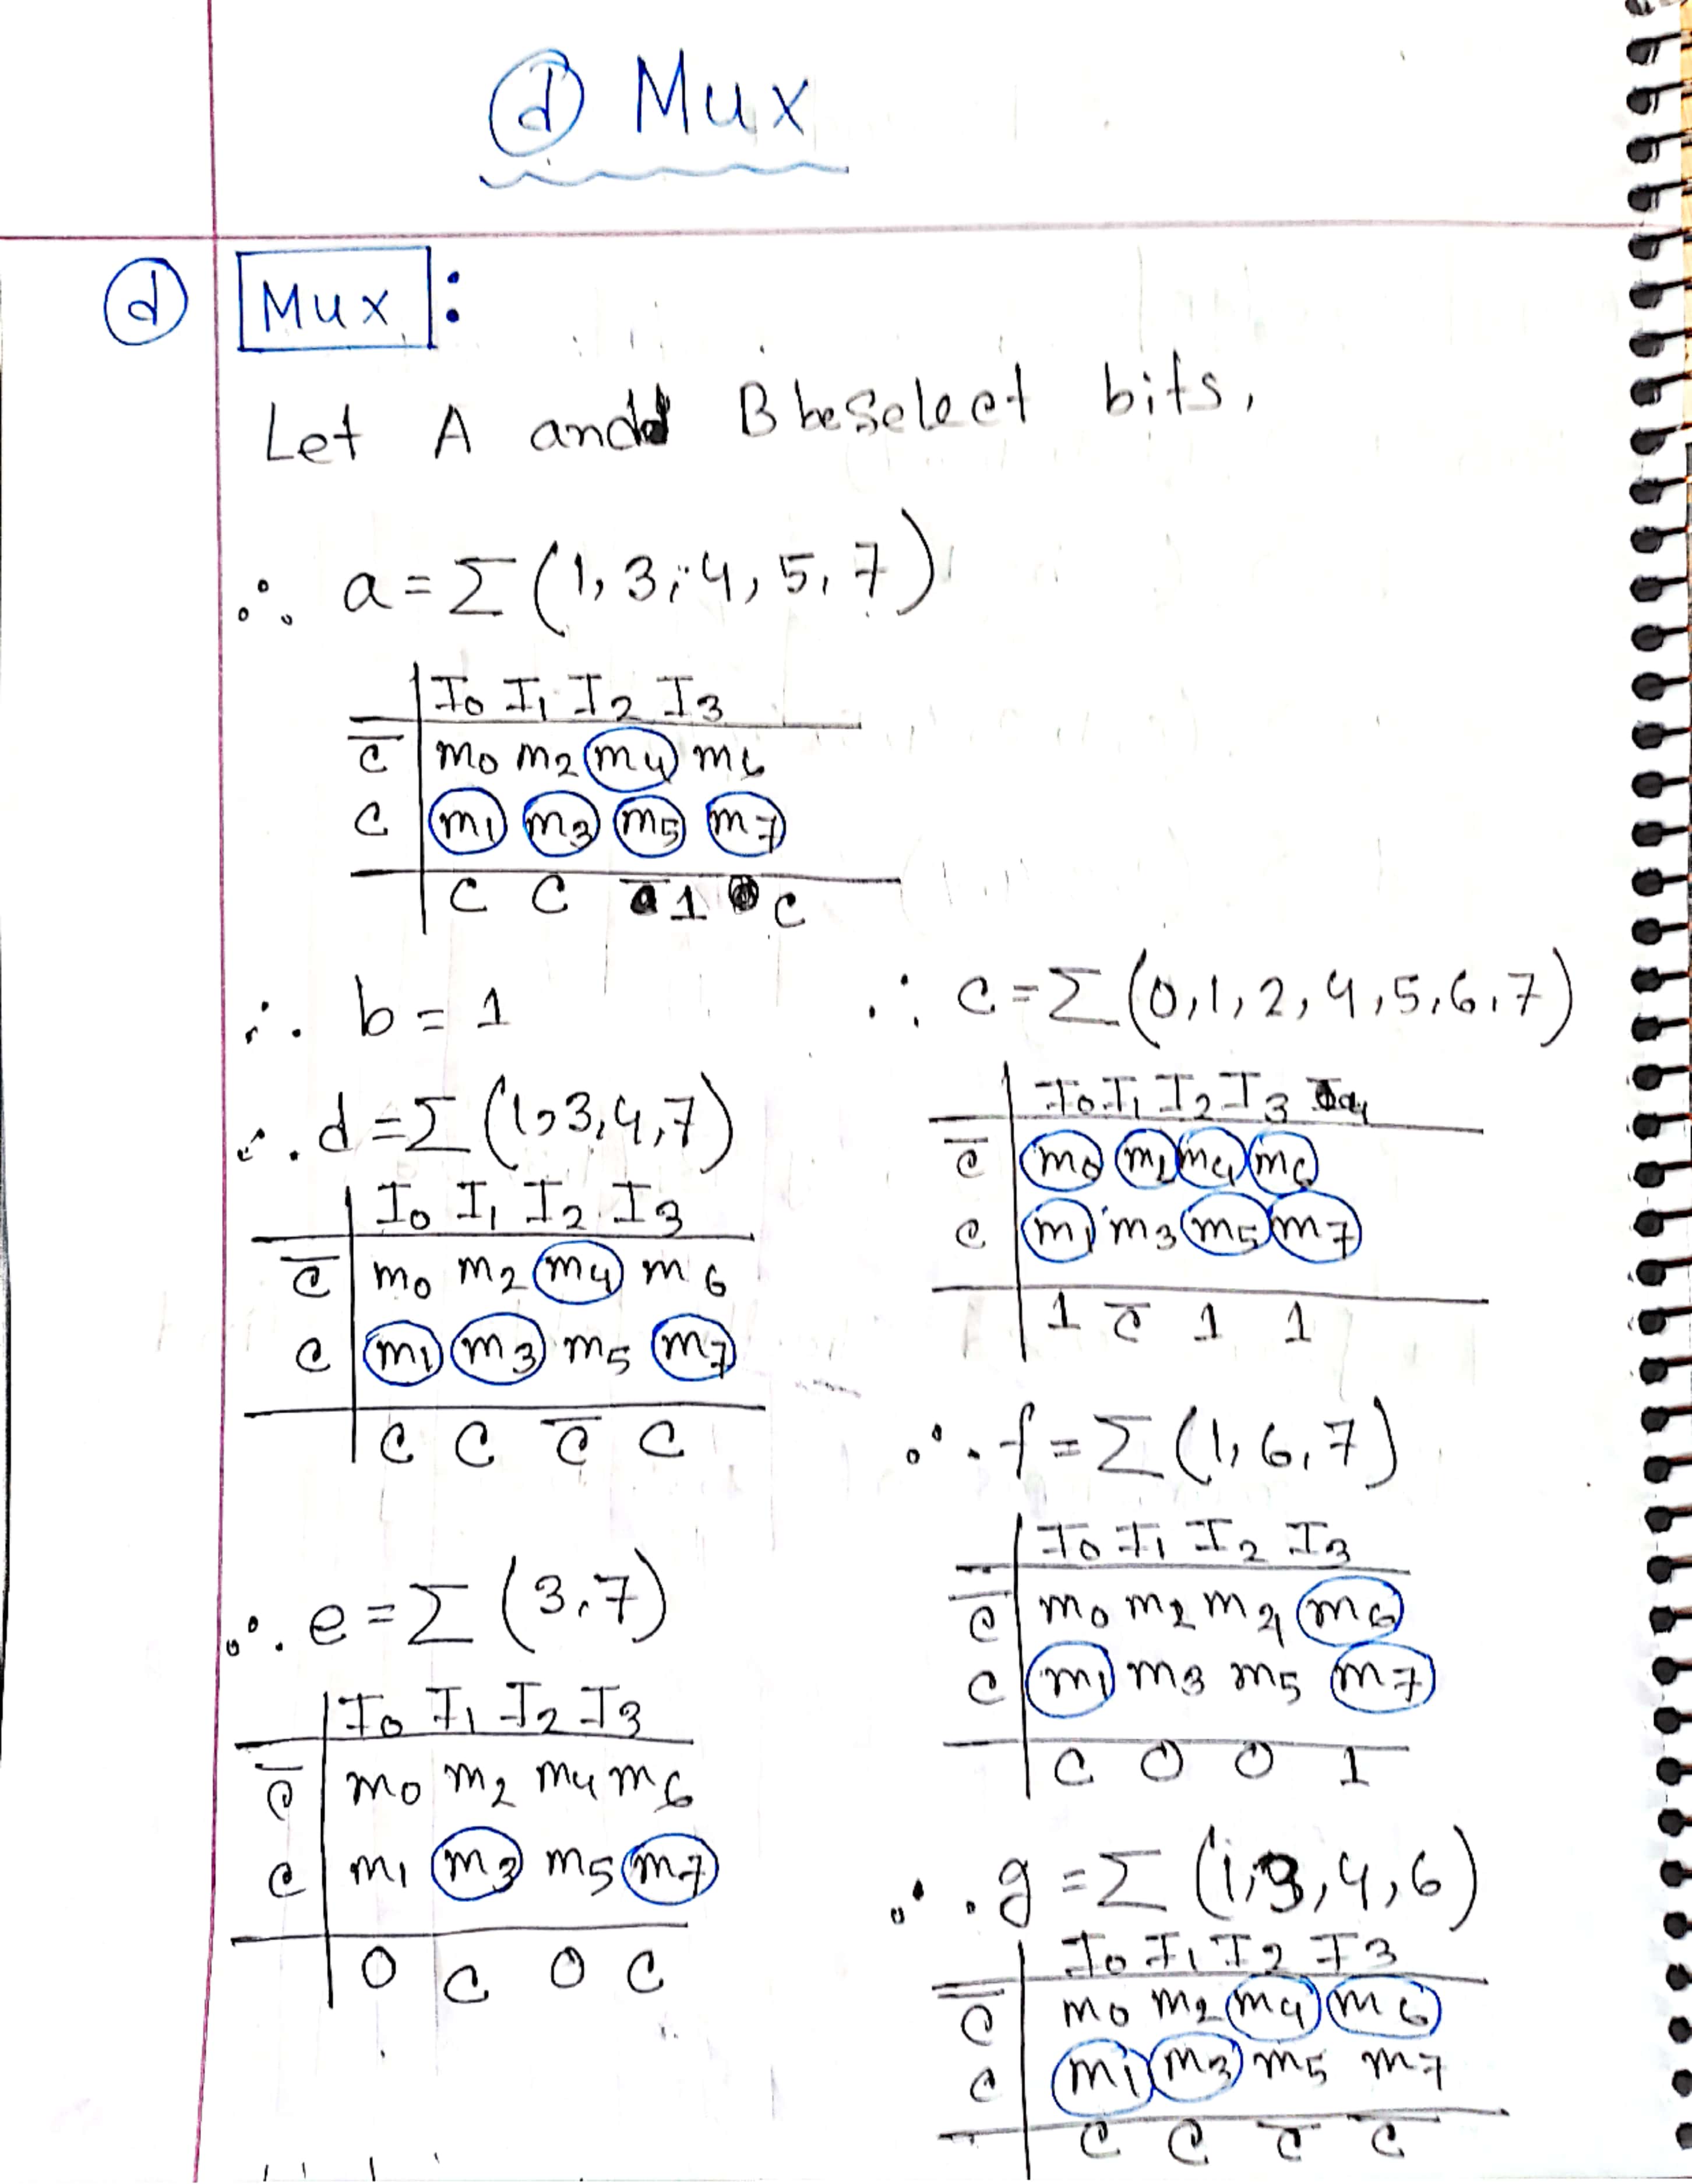 ⓓ Mux
ⓓ Mux :
Let A and B be Select bits,
∴ a = Σ (1, 3, 4, 5, 7)
I0 I1 I2 I3
C̅ m0 m2 m4 m6
C m1 m3 m5 m7
C C 1 C
∴ b = 1
∴ c = Σ (0, 1, 2, 4, 5, 6, 7)
I0 I1 I2 I3
C̅ m0 m2 m4 m6
C m1 m3 m5 m7
1 C̅ 1 1
∴ d = Σ (1, 3, 4, 7)
I0 I1 I2 I3
C̅ m0 m2 m4 m6
C m1 m3 m5 m7
C C C̅ C
∴ f = Σ (1, 6, 7)
I0 I1 I2 I3
C̅ m0 m2 m4 m6
C m1 m3 m5 m7
C 0 0 1
∴ e = Σ (3, 7)
I0 I1 I2 I3
C̅ m0 m2 m4 m6
C m1 m3 m5 m7
0 C 0 C
∴ g = Σ (1, 3, 4, 6)
I0 I1 I2 I3
C̅ m0 m2 m4 m6
C m1 m3 m5 m7
C C C̅ C̅